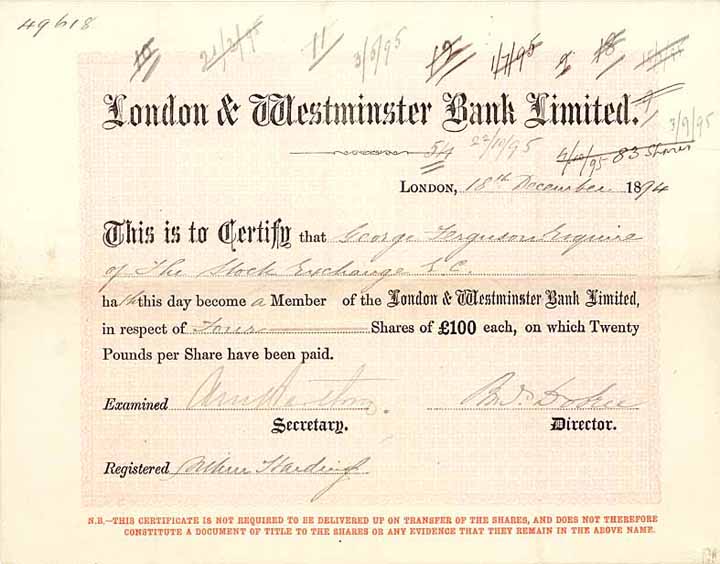 49618
10 21/2/95 11 3/5/95 12 1/7/95 2 18
London & Westminster Bank Limited.
3/9/95
54 22/10/95 4/10/95 83 Shares
London, 18th December 1894
This is to Certify that George Ferguson Esquire
of The Stock Exchange E.C.
hath this day become a Member of the London & Westminster Bank Limited,
in respect of Four Shares of £100 each, on which Twenty
Pounds per Share have been paid.
Examined
Secretary. Director.
Registered Harding
N.B.—THIS CERTIFICATE IS NOT REQUIRED TO BE DELIVERED UP ON TRANSFER OF THE SHARES, AND DOES NOT THEREFORE
CONSTITUTE A DOCUMENT OF TITLE TO THE SHARES OR ANY EVIDENCE THAT THEY REMAIN IN THE ABOVE NAME.